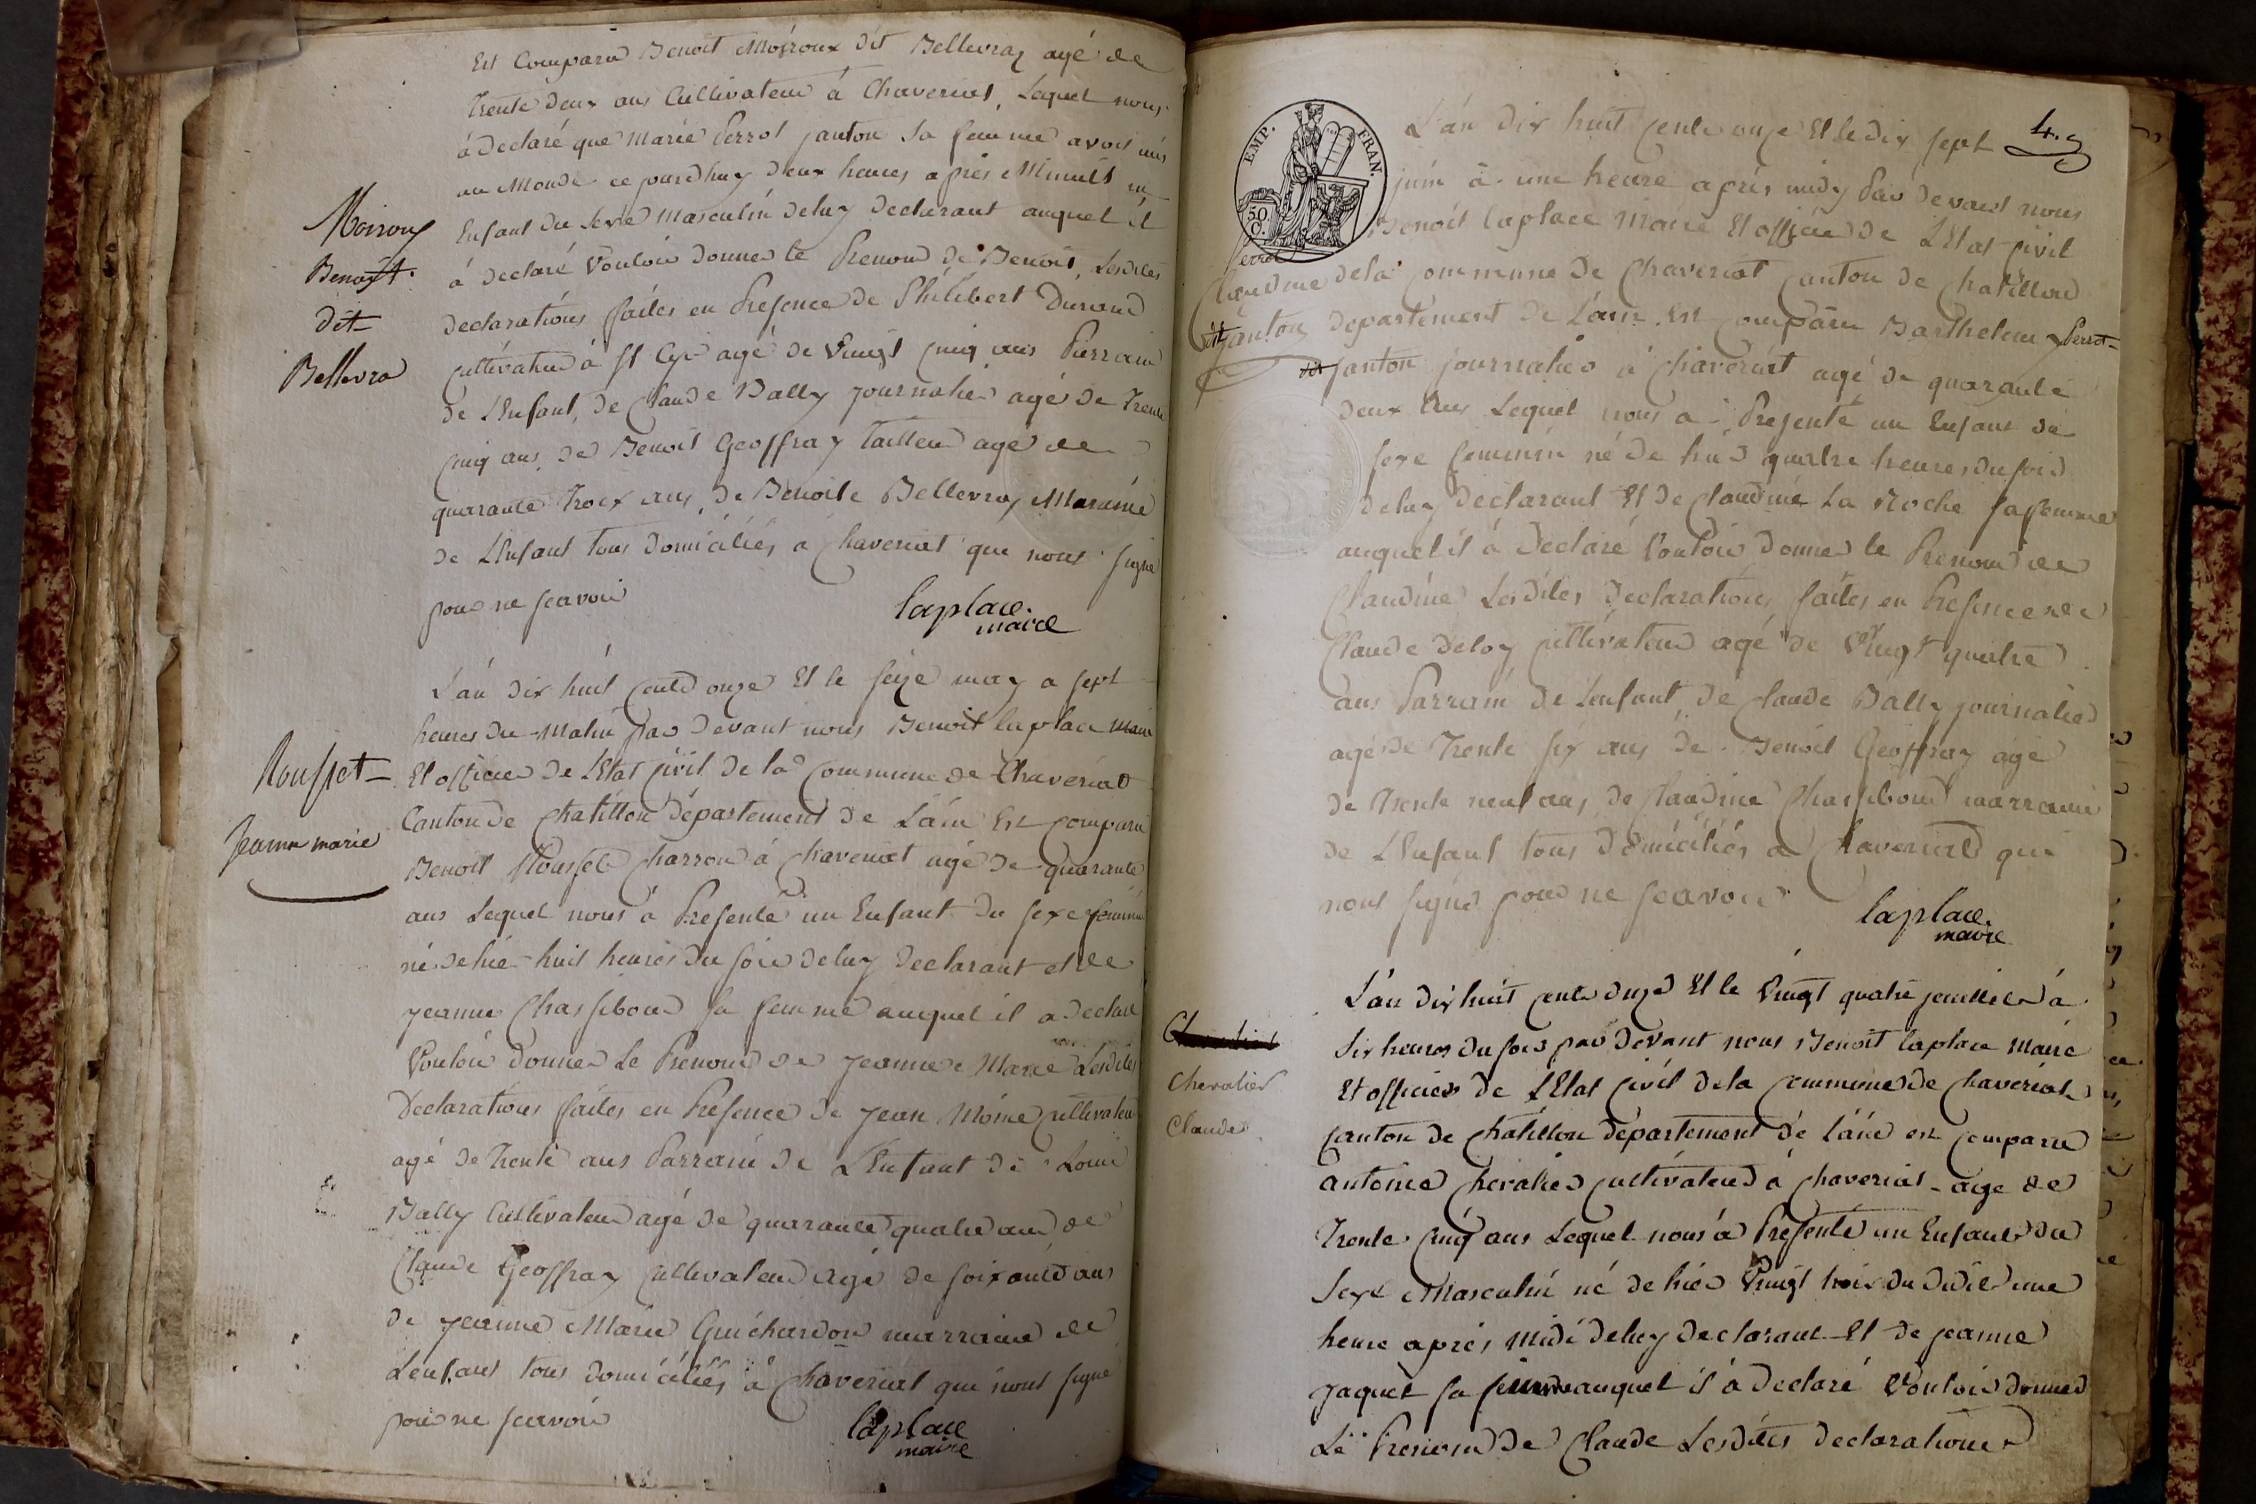 Est Comparu Benoit Moiroux dit Bellevray agé de
trente deux ans Cultivateur à Chaveriat, Lequel nous
à declaré que Marie Perrot janton sa femme avoit mis
au Monde ce jourdhuy deux heures après Minuit un
Enfant du sexe Masculin deluy declarant auquel il
à declaré Vouloir donner le Prenom de Benoit, Lesdites
declarations faites en Presence de Philibert Durand
cultivateur à St Cyr agé de Vingt cinq ans Parrain
de L'Enfant, de Claude Bally journalier agé de Trente
cinq ans, de Benoit Geoffray tailleur agé de
quarante troix ans, de Benoite Bellevray Maraine
de L'Enfant tous domiciliés à Chaveriat que nont signé
pour ne scavoir
laplace
maire
Moiroux
Benoit
dit
Bellevra
L'an dix huit cents onze Et le seize may a sept
heures du Matin par devant nous Benoit laplace Maire
Et officier de L'Etat civil de la Commune de Chaveriat
Canton de Chatillon département de L'ain Est comparu
Benoit Rousset charron à Chaveriat agé de quarante
ans Lequel nous à Presenté un Enfant du sexe feminin
né de hier huit heures du soir deluy declarant et de
jeanne Chassiboud sa femme auquel il a declaré
Vouloir donner Le Prenom de jeanne Marie Lesdites
Declarations faites en Presence de jean Móme cultivateur
agé de trente ans Parrain de L'Enfant de Louis
Bally Cultivateur agé de quarante quatre ans de
Claude Geoffray cultivateur agé de soixante ans
de jeanne Marie Guichardon marraine de
L'enfant tous domiciliés à Chaveriat qui nont signé
pour ne scavoir
laplace
maire
Rousset
jeanne marie
4.
EMP. FRAN.
50
C.
L'an dix huit cents onze Et le dix sept
juin à une heure après midy Par devant nous
Benoit laplace Maire Et officier de L'Etat civil
dela commune de Chaveriat canton de Chatillon
departement de L'ain Est comparu Barthelemy Perrot
dit janton journalier à Chaveriat agé de quarante
deux ans Lequel nous a Presenté un Enfant du
sexe feminin né de hier quatre heures du soir
deluy declarant Et de Claudine La Roche sa femme
auquel il à declaré Vouloir donner le Prenom de
Claudine Lesdites declarations faites en Presence de
Claude Deloy cultivateur agé de Vingt quatre
ans Parrain de L'enfant, de Claude Bally journalier
agé de Trente six ans de Benoit Geoffray agé
de Trente neuf ans, de Claudine Chassiboud marraine
de L'Enfant tous domiciliés à Chaveriat qui
nont signé pour ne scavoir
laplace
maire
Perrot
Claudine
dit janton
L'an dix huit cents onze Et le Vingt quatre juillet à
six heures du soir par devant nous Benoit laplace Maire
Et officier de L'Etat civil dela commune de Chaveriat
canton de Chatillon département de L'ain est comparu
antoine Chevalier cultivateur à Chaveriat agé de
Trente cinq ans Lequel nous à Presenté un Enfant du
Sexe Masculin né de hier Vingt trois du dudit une
heure après midi deluy declarant Et de jeanne
jaquet sa femme auquel il à declaré Vouloir donner
Le Prenom de Claude Lesdites declarations
Chevalier
Claude